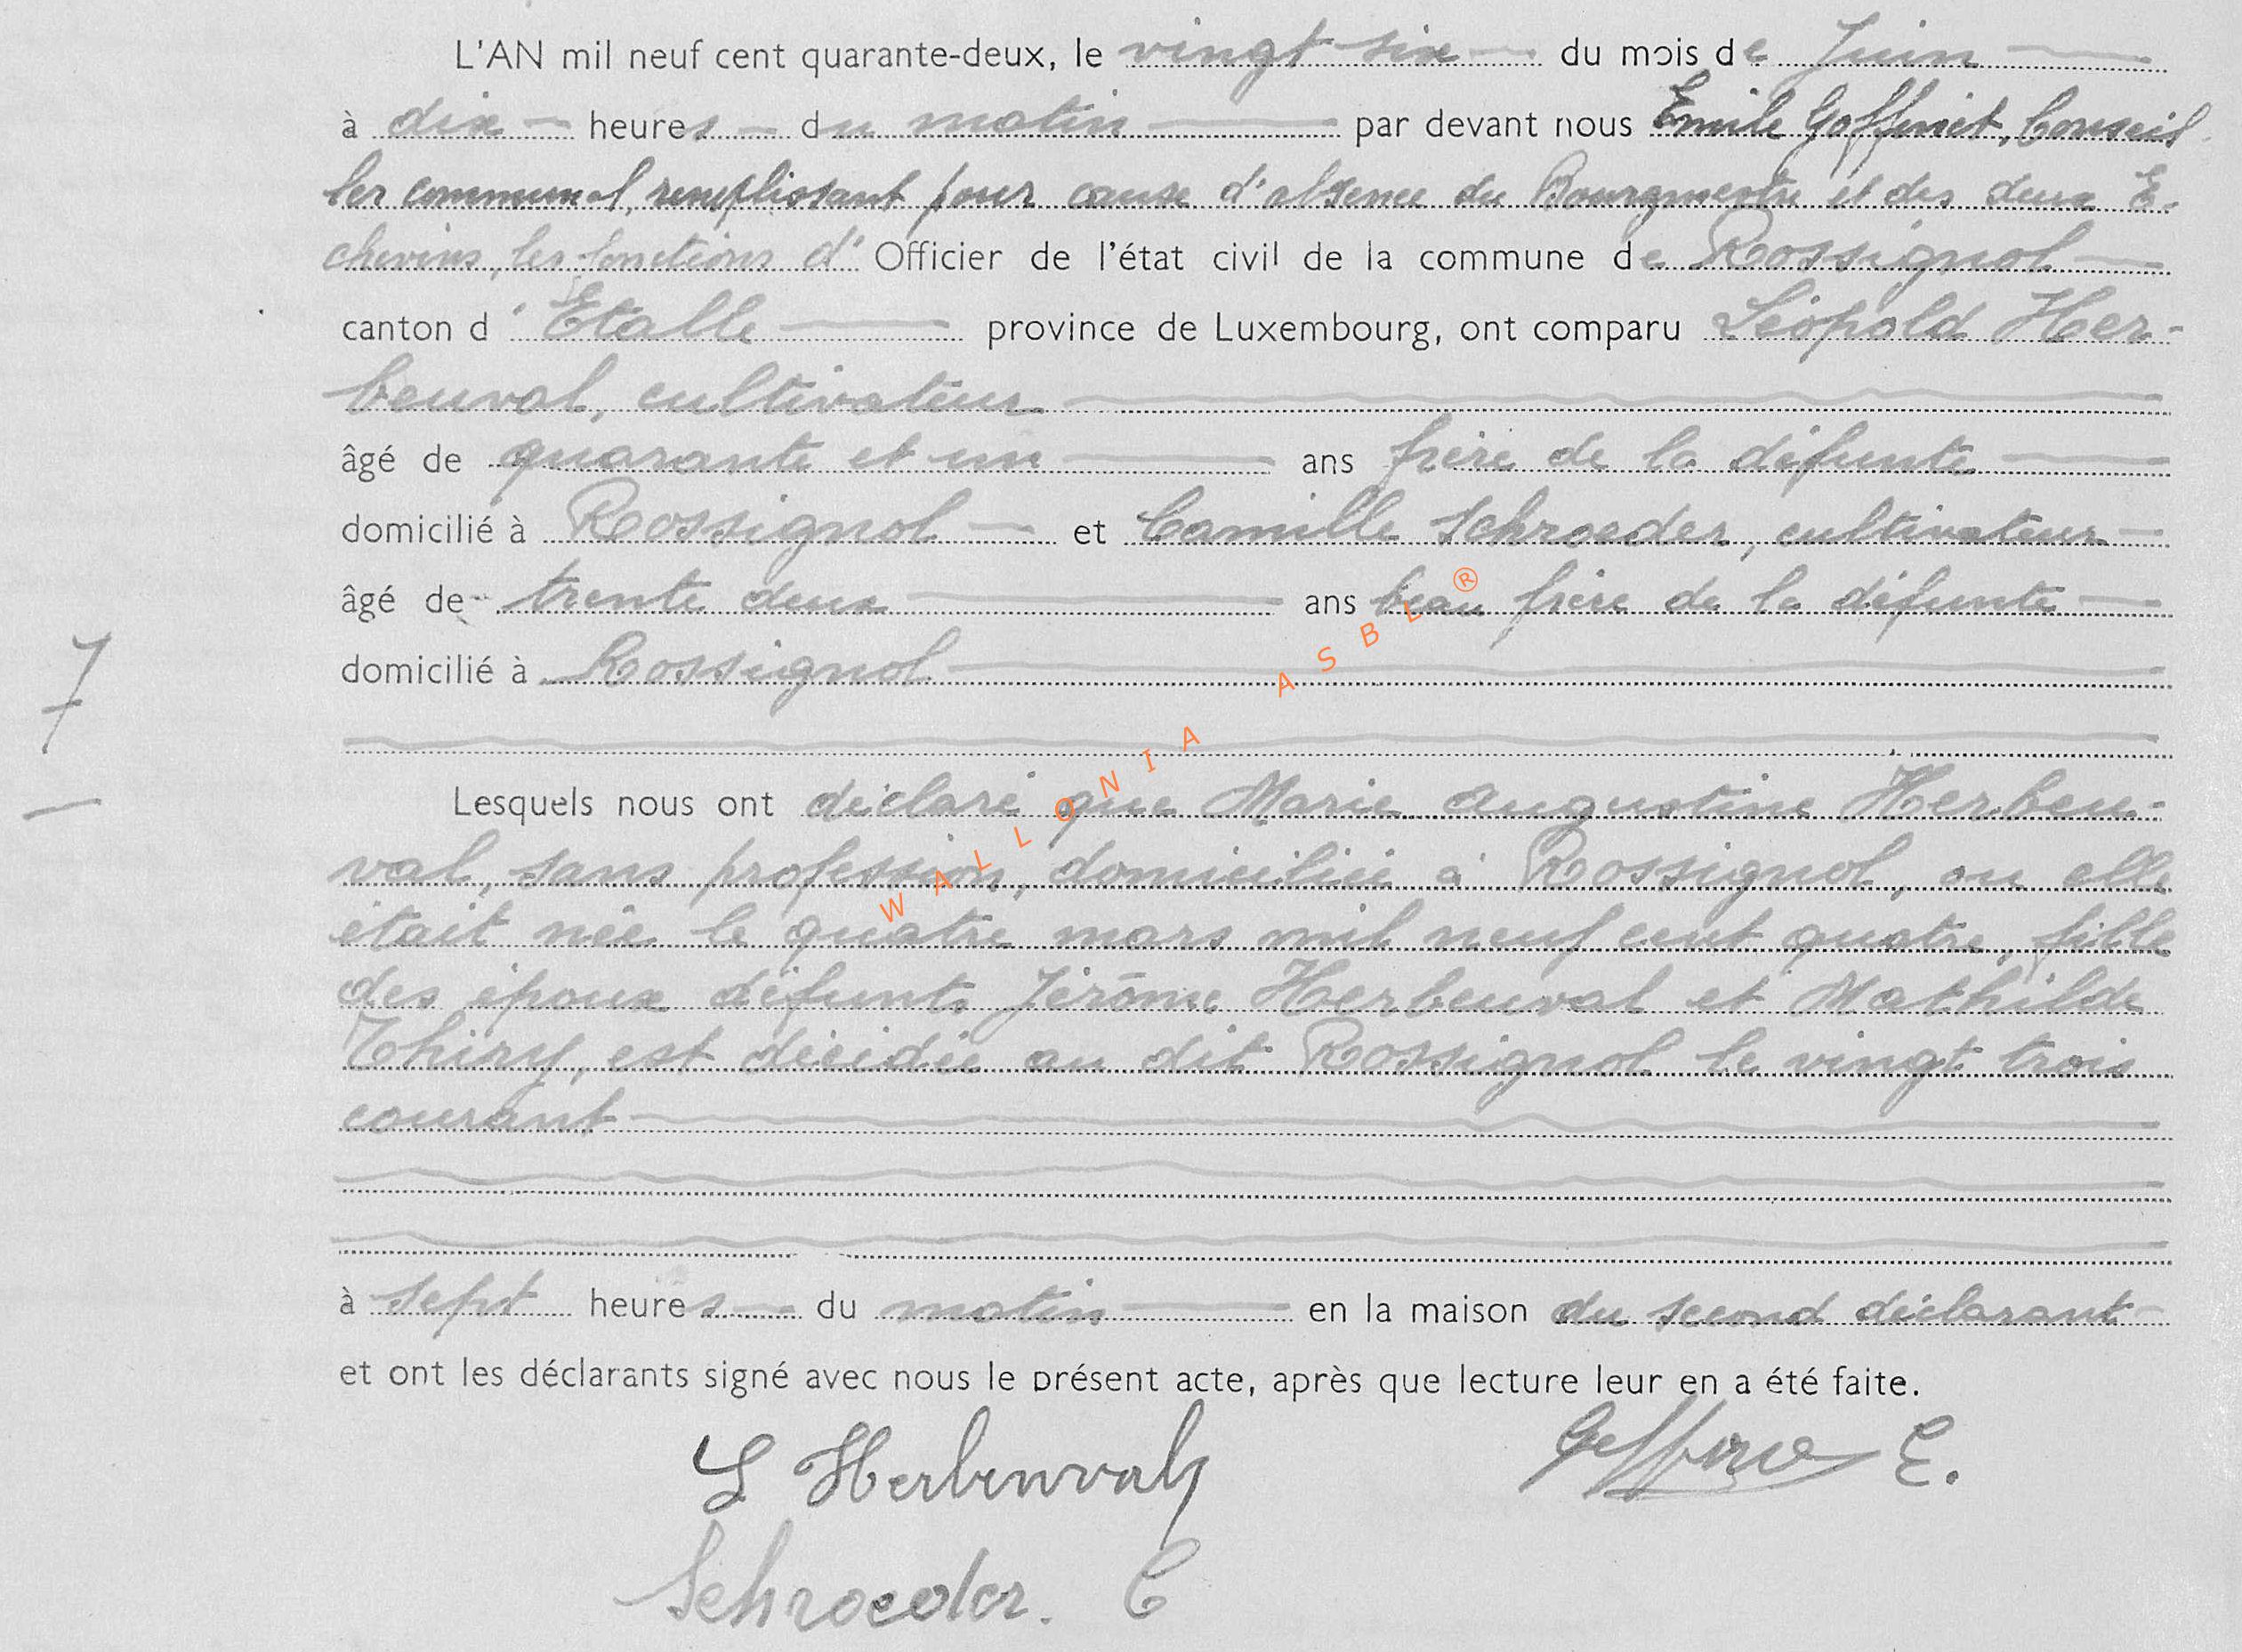 L'AN mil neuf cent quarante-deux, le vingt-six du mois de Juin
à dix heures du matin par devant nous Emile Goffinet, Conseil
ler communal, remplissant pour cause d'absence du Bourgmestre et des deux E-
chevins, les fonctions d' Officier de l'état civil de la commune de Rossignol
canton d' Etalle province de Luxembourg, ont comparu Léopold Her-
beuval, cultivateur
âgé de quarante et un ans frère de la défunte
domicilié à Rossignol et Camille Schroeder, cultivateur
âgé de trente deux ans beau frère de la défunte
domicilié à Rossignol
7
Lesquels nous ont déclaré que Marie Augustine Herbeu-
val, sans profession, domiciliée à Rossignol, ou elle
était née le quatre mars mil neuf cent quatre, fille
des époux défunts Jérôme Herbeuval et Mathilde
Thiry, est décédée au dit Rossignol le vingt trois
courant
à sept heures du matin en la maison du second déclarant
et ont les déclarants signé avec nous le présent acte, après que lecture leur en a été faite.
L Herbeuval
Goffinet E.
Schroeder. C
WALLONIA ASBL ®